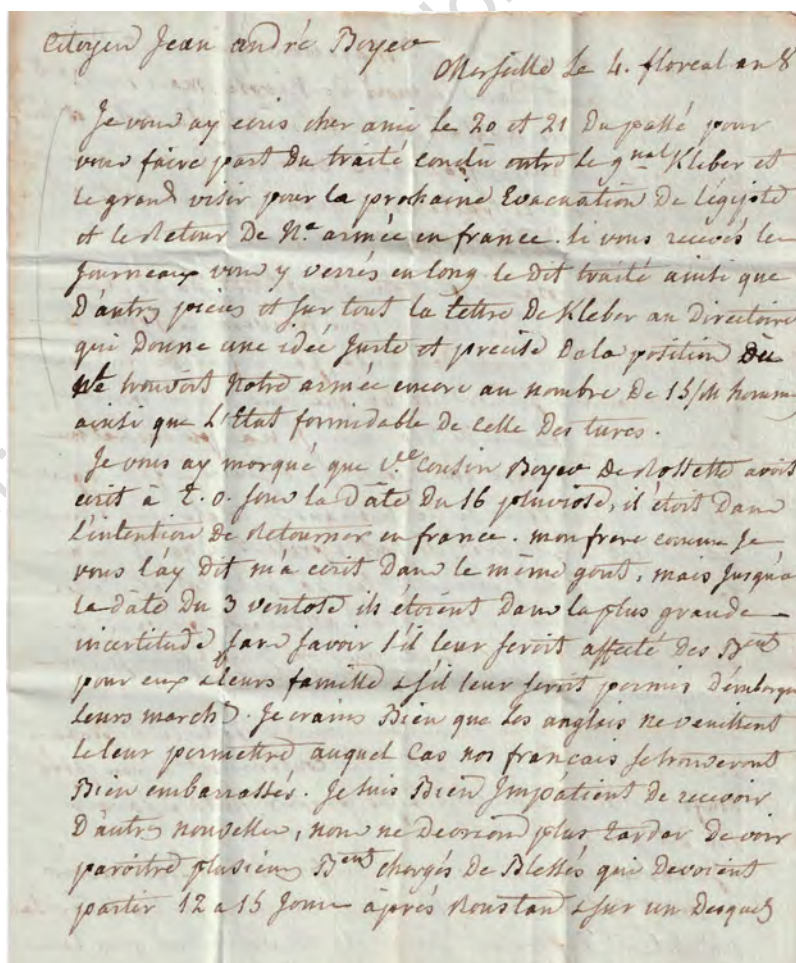 Citoyen Jean andré Boyer
Marseille le 4. floreal an 8
Je vous ay ecris cher ami le 20 et 21 Du passé pour
vous faire part Du traité conclu entre le g.nal Kleber et
le grand visir pour la prochaine Evacuation De l'égipte
et le Retour De N.e armée en france. Si vous recevés les
Journeaux vous y verrés en long le dit traité ainsi que
D'autres pieces et sur tout la lettre De Kleber au Directoire
qui Donne une idée Juste et precise De la position
se trouvoit Notre armée encore au nombre De 15/M hommes
ainsi que L'Etat formidable De celle Des turcs.
Je vous ay marqué que v.e Cousin Boyer De Rossette avoit
ecrit à T. O. sous la Dâte Du 16 pluviose, il étoit Dans
l'intention De Retourner en france. mon frere comme Je
vous l'ay Dit m'a ecrit Dans le même gout, mais Jusqu'a
la dâte Du 3 ventose ils étoient Dans la plus grande
incertitude, sans savoir s'il leur seroit affecté des B.ents
pour eux & leurs famille & s'il leur seroit permis D'embarquer
leurs march.D. Je crains Bien que les anglais ne veuillent
le leur permettre auquel Cas nos francais se trouveront
Bien embarrassés. Je suis Bien Impâtient De recevoir
D'autres nouvelles, nous ne Devrions plus tarder De voir
paroitre plusieurs B.ents chargés De Blessés qui Devoient
partir 12 a 15 Jours après Roustan & sur un Desquels